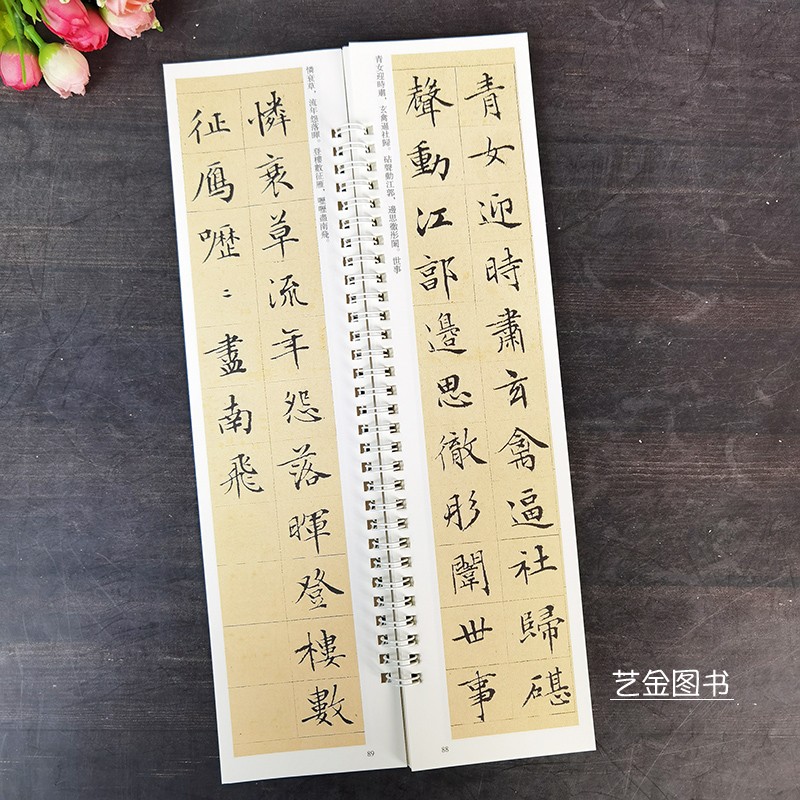 青女迎時肅玄禽逼社歸碪
聲動江郭邊思徹彤闈世事
青女迎時肅，玄禽逼社歸。砧聲動江郭，邊思徹彤闈。世事
88
憐衰草，流年怨落暉。登樓數征雁，嚦嚦盡南飛。
憐衰草流年怨落暉登樓數
征鴈嚦〻盡南飛
89
艺金图书